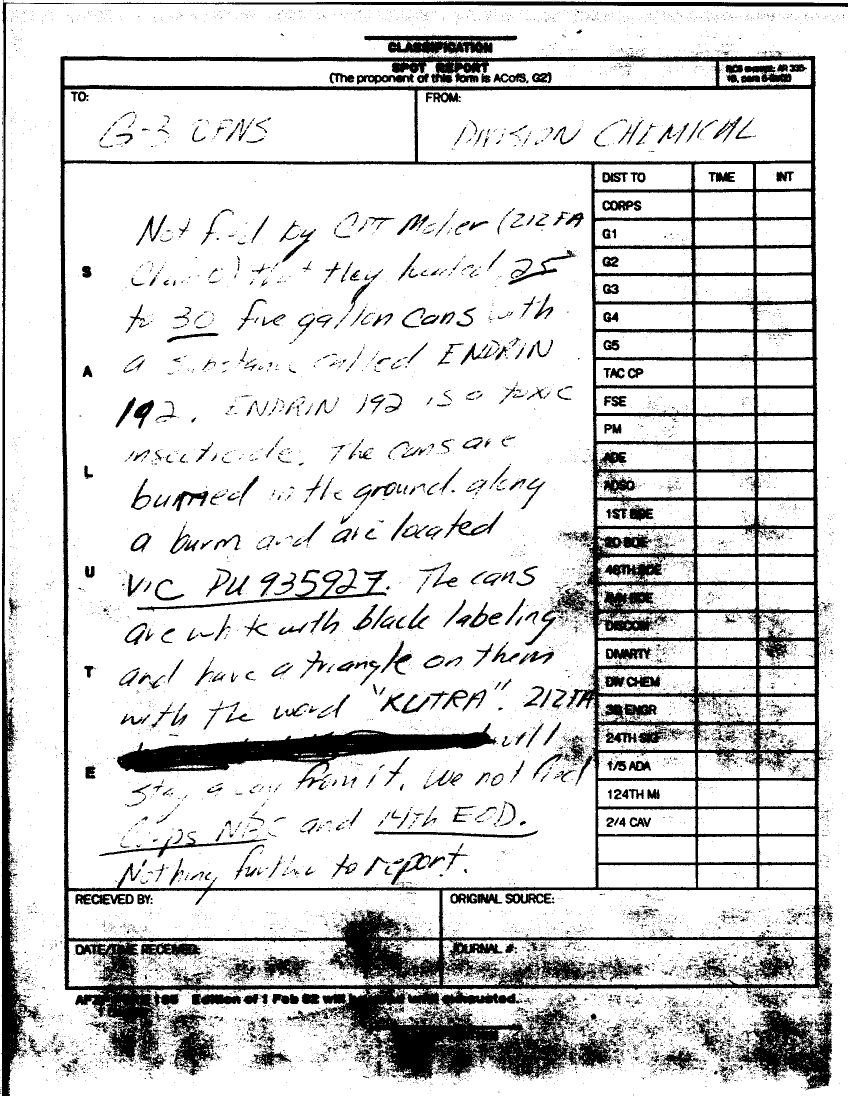 CLASSIFICATION
SPOT REPORT
(The proponent of this form is ACofS, G2)
TO:
G-3 OPNS
FROM:
DIVISION CHEMICAL
DIST TO TIME INT
CORPS
G1
G2
G3
G4
G5
TAC CP
FSE
PM
ADE
ADSO
1ST BDE
2D BDE
48TH BDE
AVN BDE
DISCOM
DIVARTY
DIV CHEM
3D ENGR
24TH SIG
1/5 ADA
124TH MI
2/4 CAV
S
A
L
U
T
E
Not fied by CPT (212FA
that they 25
to 30 five gallon cans with
a substance called ENDRIN
192. ENDRIN 192 is a toxic
insecticide. The cans are
burried in the ground. along
a burm and are located
VIC PU 935927. The cans
are white with black labeling
and have a triangle on them
with the word "KUTRA". 212FA
will
stay away from it. We not fied
Corps NBC and 14th EOD.
Nothing further to report.
RECIEVED BY:
ORIGINAL SOURCE:
DATE/TIME RECEIVED:
JOURNAL #:
Edition of 1 Feb 82 will be used until exhausted.